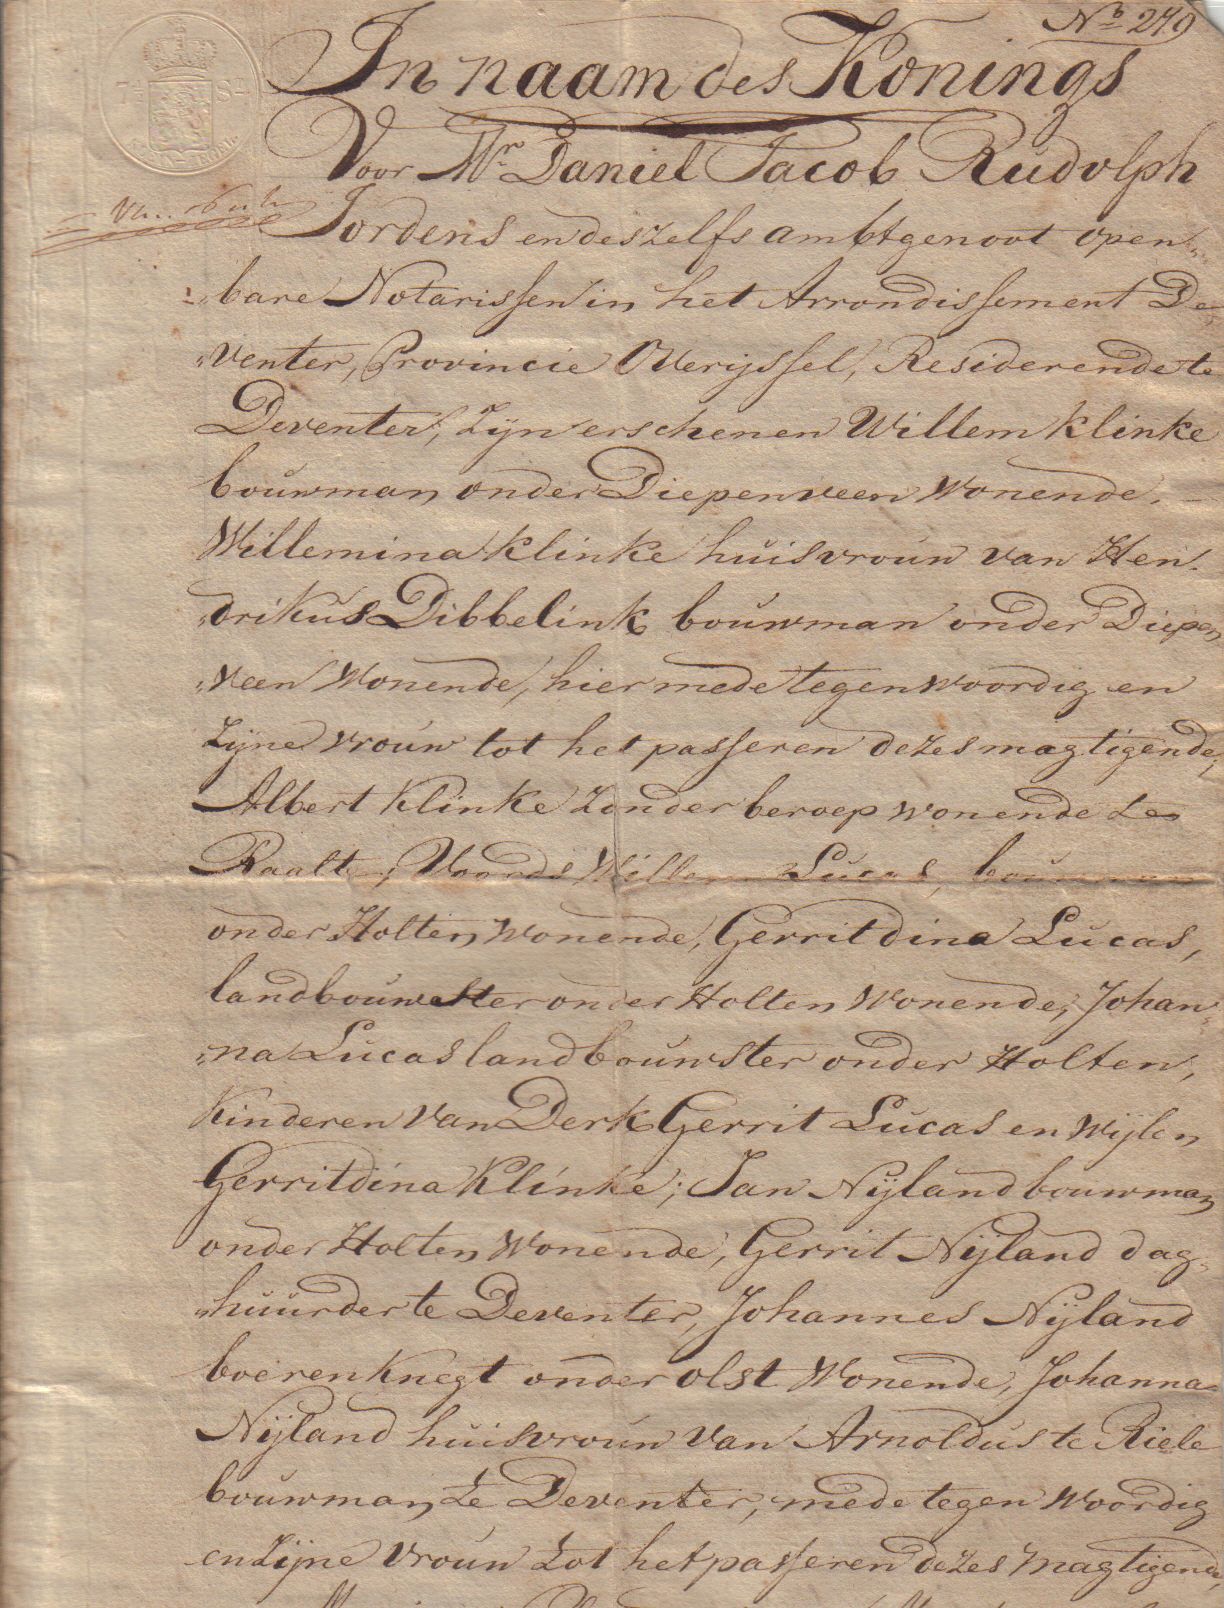 Nº 279
In naam des Konings
Voor Mr Daniel Jacob Rudolph
Jordens en deszelfs ambtgenoot open„
„bare Notarissen in het Arrondissement De„
„venter, Provincie Overijssel, Residerende te
Deventer, Zijn erschenen Willem Klinke
bouwman onder Diepenveen Wonende,
Willemina Klinke huisvrouw van Hen„
„drikus Dibbelink bouwman onder Diepen
„veen Wonende, hier mede tegenwoordig en
Zijne vrouw tot het passeren dezes magtigende,
Albert Klinke Zonder beroep wonende te
Raalte, Voords Willem Lucas, bouwman
onder Holten Wonende, Gerritdina Lucas,
landbouwster onder Holten Wonende, Johan„
„na Lucas landbouwster onder Holten,
Kinderen van Derk Gerrit Lucas en wijlen
Gerritdina Klinke; Jan Nijland bouwman
onder Holten Wonende, Gerrit Nijland dag„
„huurder te Deventer, Johannes Nijland
boerenknegt onder olst Wonende, Johanna
Nijland huisvrouw van Arnoldus te Riele
bouwman te Deventer, mede tegenwoordig
en Zijne vrouw tot het passeren dezes magtigende,